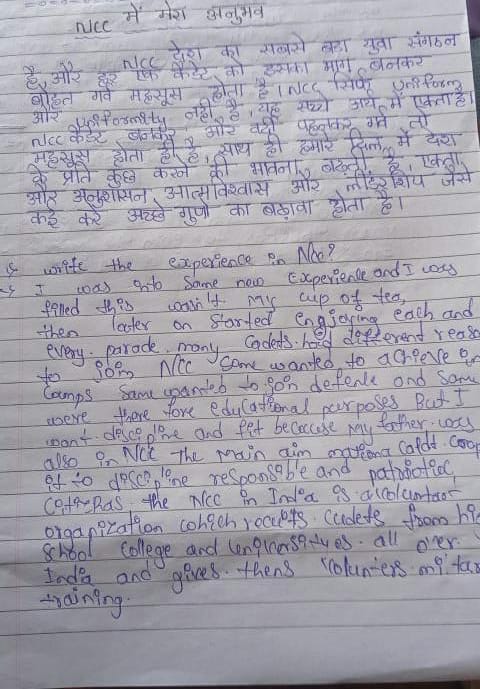 NCC में मेरा अनुभव
NCC देश का सबसे बड़ा युवा संगठन
है, और हर एक कैडेट को इसका भाग बनकर
बोहत गर्व महसूस होता है। NCC सिर्फ uniform
और uniformity नहीं है, यह सच्चे अर्थ में एकता है।
NCC कैडेट बनकर, और वर्दी पहनकर गर्व तो
महसूस होता ही है, साथ ही हमारे दिल में देश
के प्रति कुछ करने की भावना बढ़ती है, एकता
और अनुशासन, आत्मविश्वास और लीडरशिप जैसे
कई करे अच्छे गुणो का बढ़ावा होता है।
write the experience in NCC?
I was into same new experience and I was
filled this wasn't my cup of tea,
then later on started engjoying each and
every parade many cadets had different reaso
to join NCC some wanted to achieve in
camps same wanted to join defence and same
were there fore educational purposes But I
want discipline and fit because my father was
also in NCC The main aim nationa Caldt Corp
it to discipline responsible and patriotic
Citizhas. the NCC in India is a coluntaor
organization which recuits cadets from hig
school college and universityes all over
India and gives thens volunters militar
training.